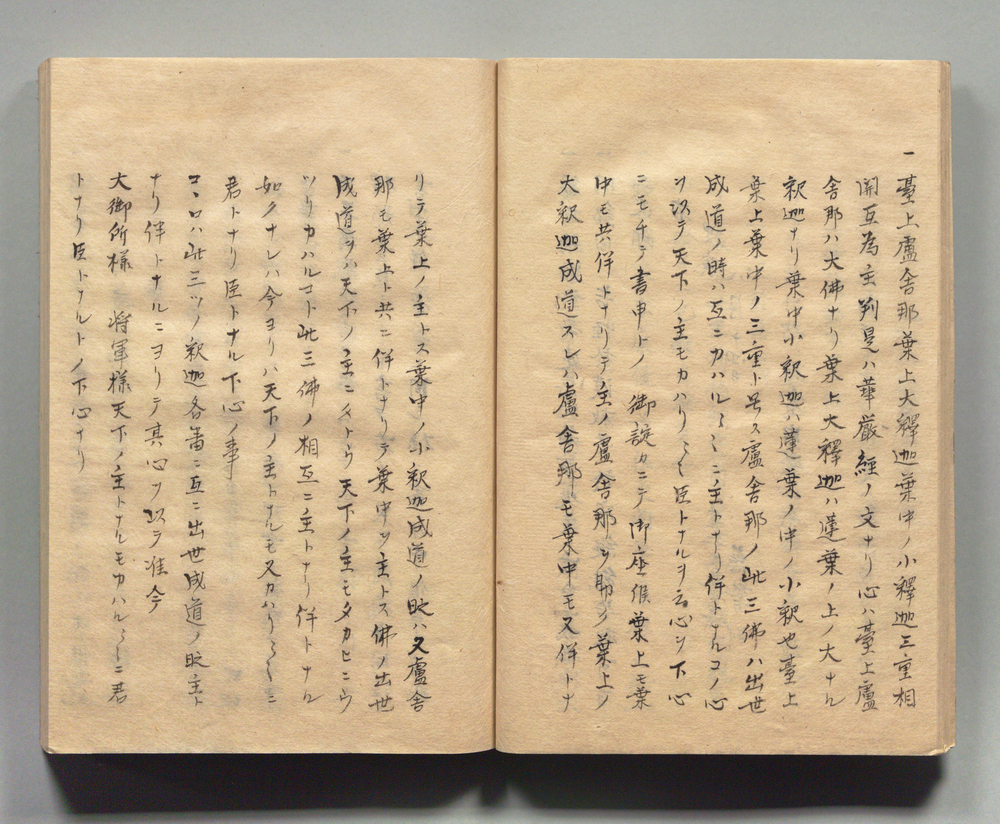 一
臺上盧舎那葉上大釋迦葉中ノ小釋迦三重相
開互為主判是ハ華嚴經ノ文ナリ心ハ臺上盧
舎那ハ大佛ナリ葉上大釋迦ハ蓮葉ノ上ノ大ナル
釈迦ナリ葉中小釈迦ハ蓮葉ノ中ノ小釈也臺上
葉上葉中ノ三重ト号ス盧舎那ノ此三佛ハ出世
成道ノ時ハ互ニカハル〳〵ニ主トナリ伴トナルコノ心
ヲ以テ天下ノ主モカハリ〳〵臣トナルヲ云心ヲ下心
ニモチテ書申トノ 御諚カニテ御座候葉上モ葉
中モ共ハ伴トナリテ主ノ盧舎那ヲ助ク葉上ノ
大釈迦成道スレハ盧舎那モ葉中モ又伴トナ
リテ葉上ノ主トス葉中ノ小釈迦成道ノ時ハ又盧舎
那モ葉上ト共ニ伴トナリテ葉中ヲ主トス佛ノ出世
成道ヲハ天下ノ主ニタトウ天下ノ主モタカヒニウ
ツリカハルコト此三佛ノ相互ニ主トナリ伴トナル
如クナレハ今ヨリハ天下ノ主トナルモ又カハリ〳〵ニ
君トナリ臣トナル下心ノ事
コヽロハ此三ツノ釈迦各番ニ互ニ出世成道ノ時主ト
ナリ伴トナルニヨリテ其心ヲ以テ准今
大御所様 将軍様天下ノ主トナルモカハル〳〵ニ君
トナリ臣トナルトノ下心ナリ